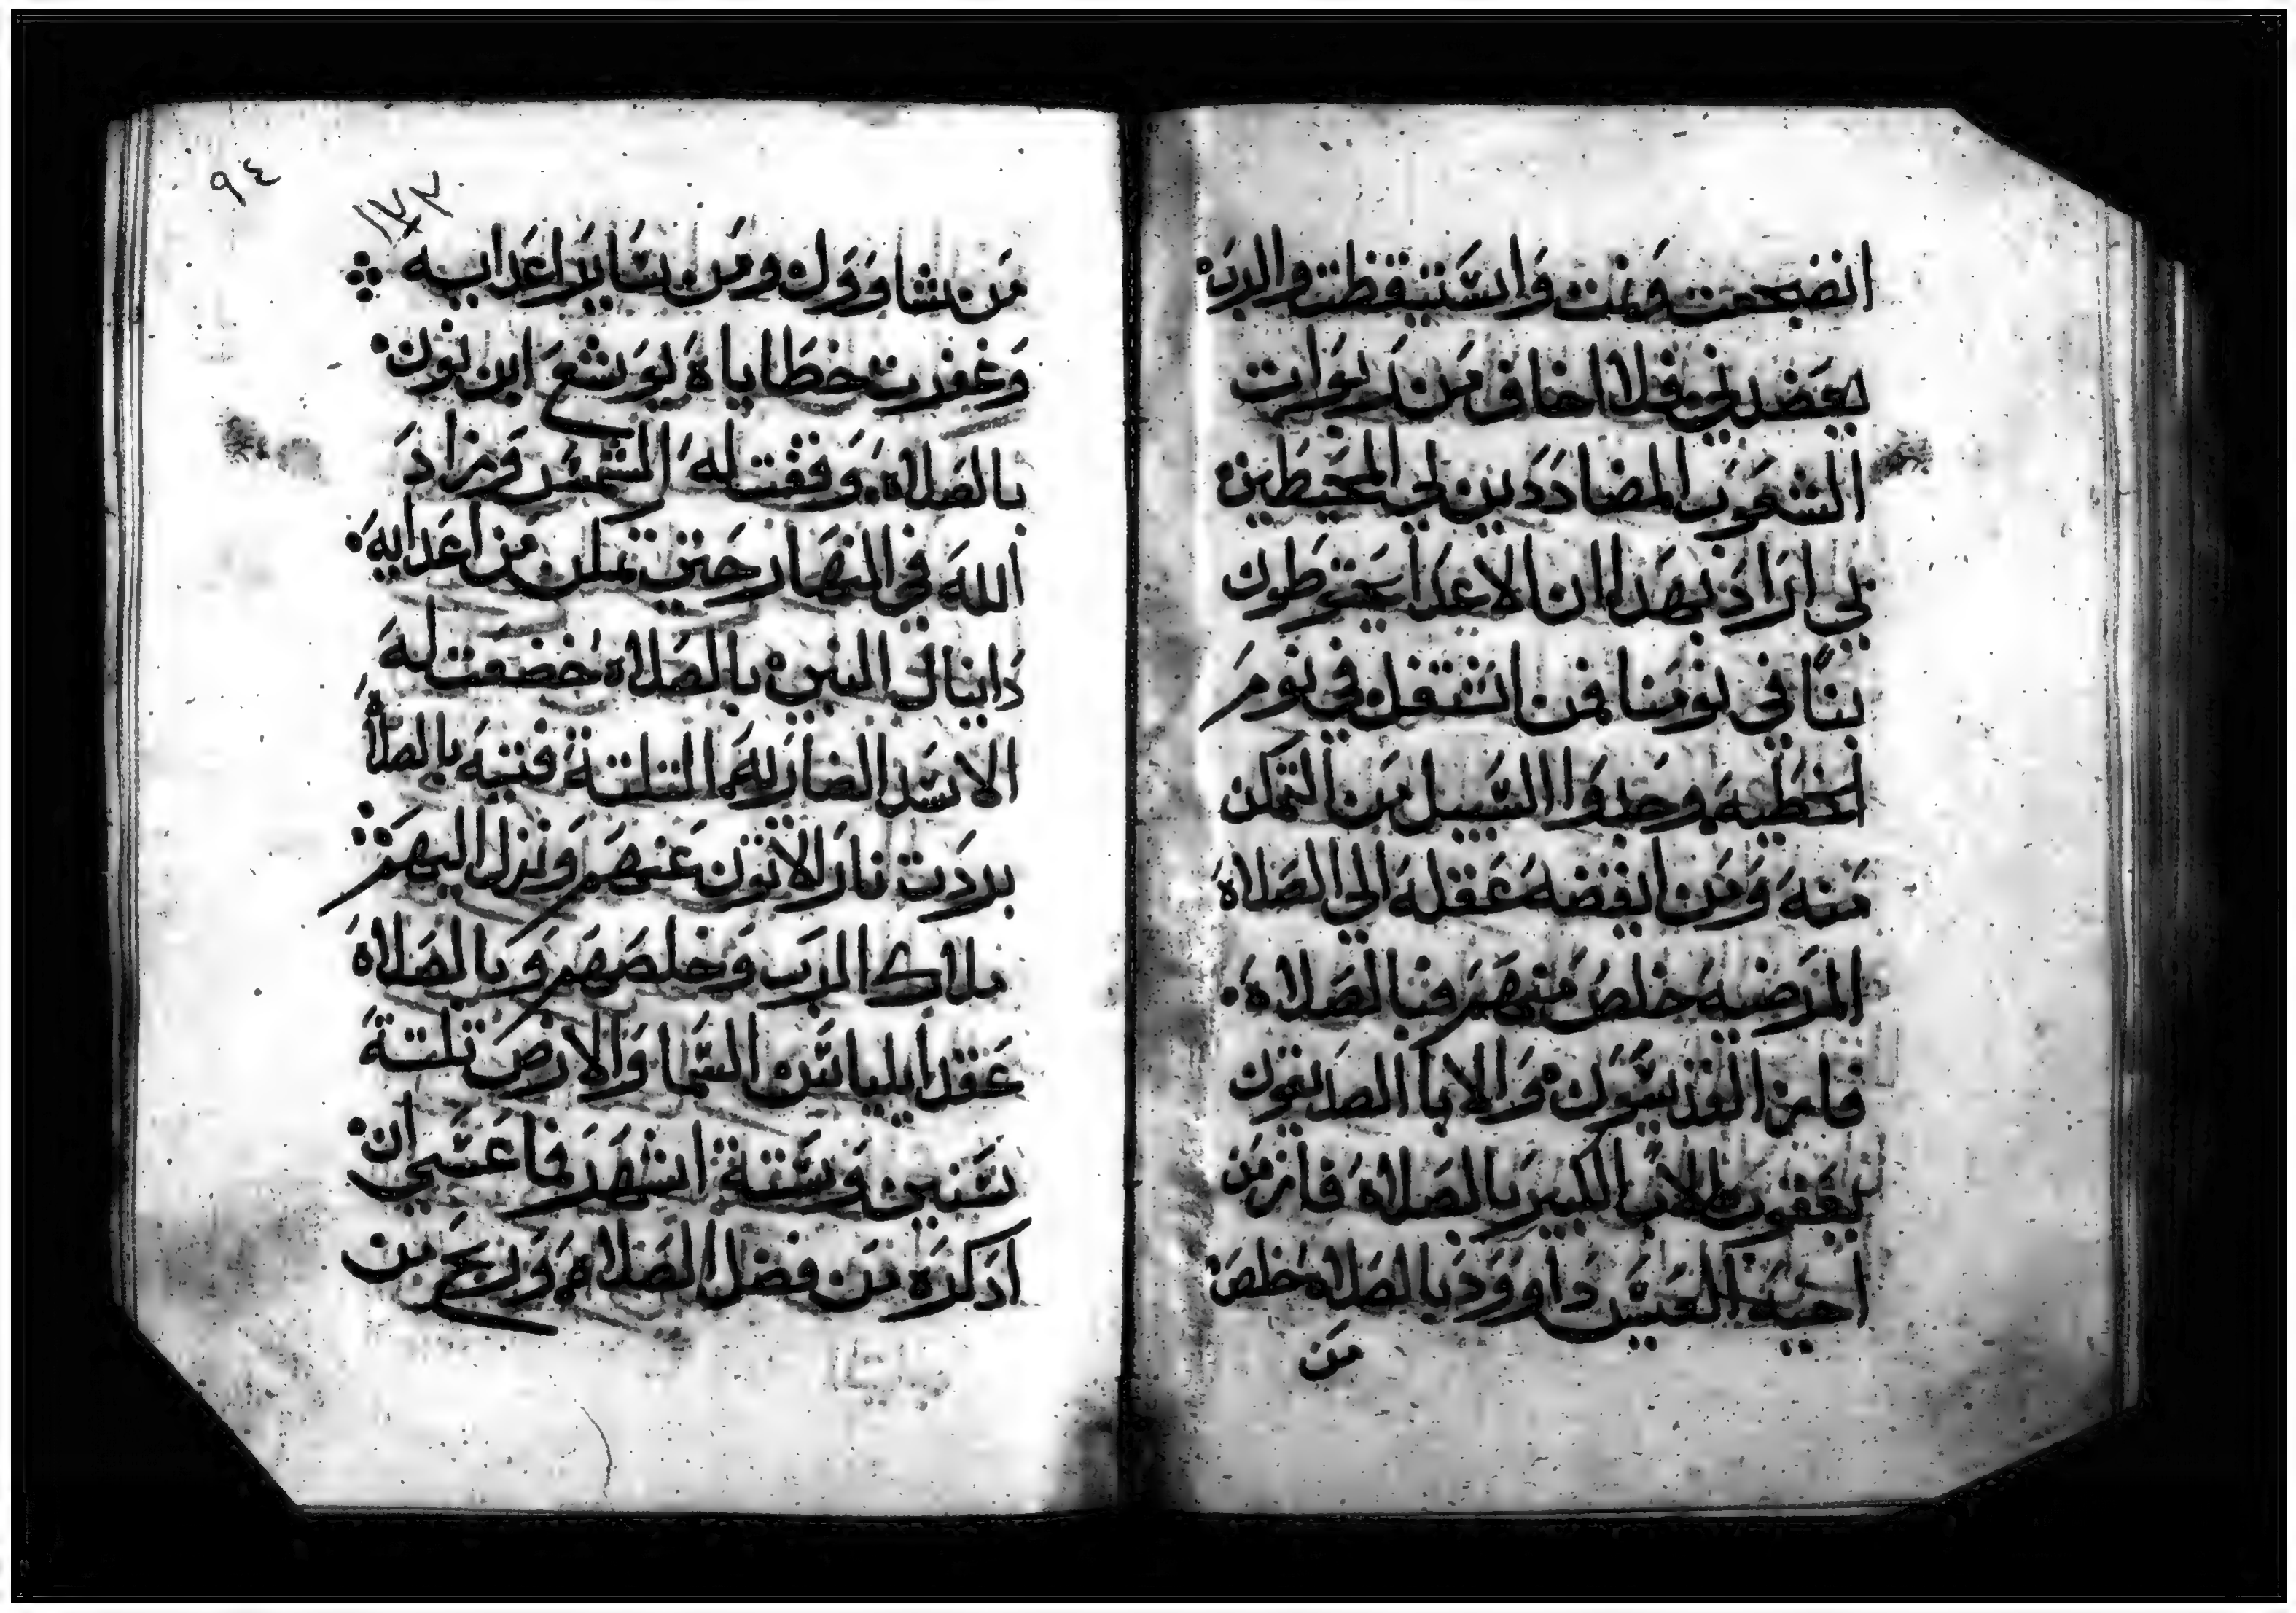 انضجعت ونمت واستيقظت والرب
يعضدني فلا اخاف من ربوات
الشعوب المضاددين لي المحيطين
لي اراد بهدا ان الاعدا يحتوطون
بنا في نومنا فمن اشتغل في نوم
الخطيه وجدوا السبيل من التمكن
منه ومن ايقضه عقله الي الصلاه
المرضيه خلص منهم فبالصلاه
فاز القديسون والابا الصديقون
يعقوب الاب الكبير بالصلاه فاز من
اخيه العيس داوود بالصلاه خلص
من
٩٤
١٧٣
من شاوول ومن ساير اعدايه
وغفرت خطاياه يوشع ابن نون
بالصلاه وقفت له الشمس وزاد
الله في النهار حتي تمكن من اعدايه
دانيال النبي بالصلاه خضعت له
الاسد الضاريه الثلثة فتيه بالصلاه
بردت نار الاتون عنهم ونزل اليهم
ملاك الرب وخلصهم وبالصلاه
عقد ايلياس السما والارض تلتة
سنين وستة اشهر فما عسي ان
ادكره من فضل الصلاه وربح من